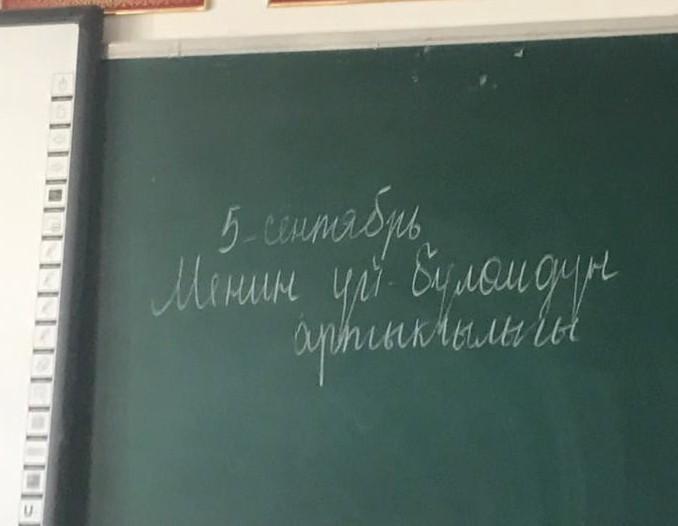 5-сентябрь
Менин үй-бүлөмдүн
артыкчылыгы
U